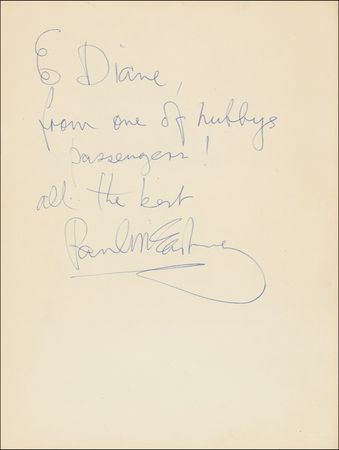 To Diane,
from one of hubbys
passengers!
all the best
Paul McCartney